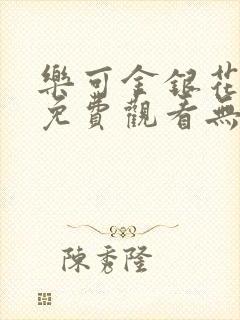 樂可金銀花
免費觀看無
陳秀隆